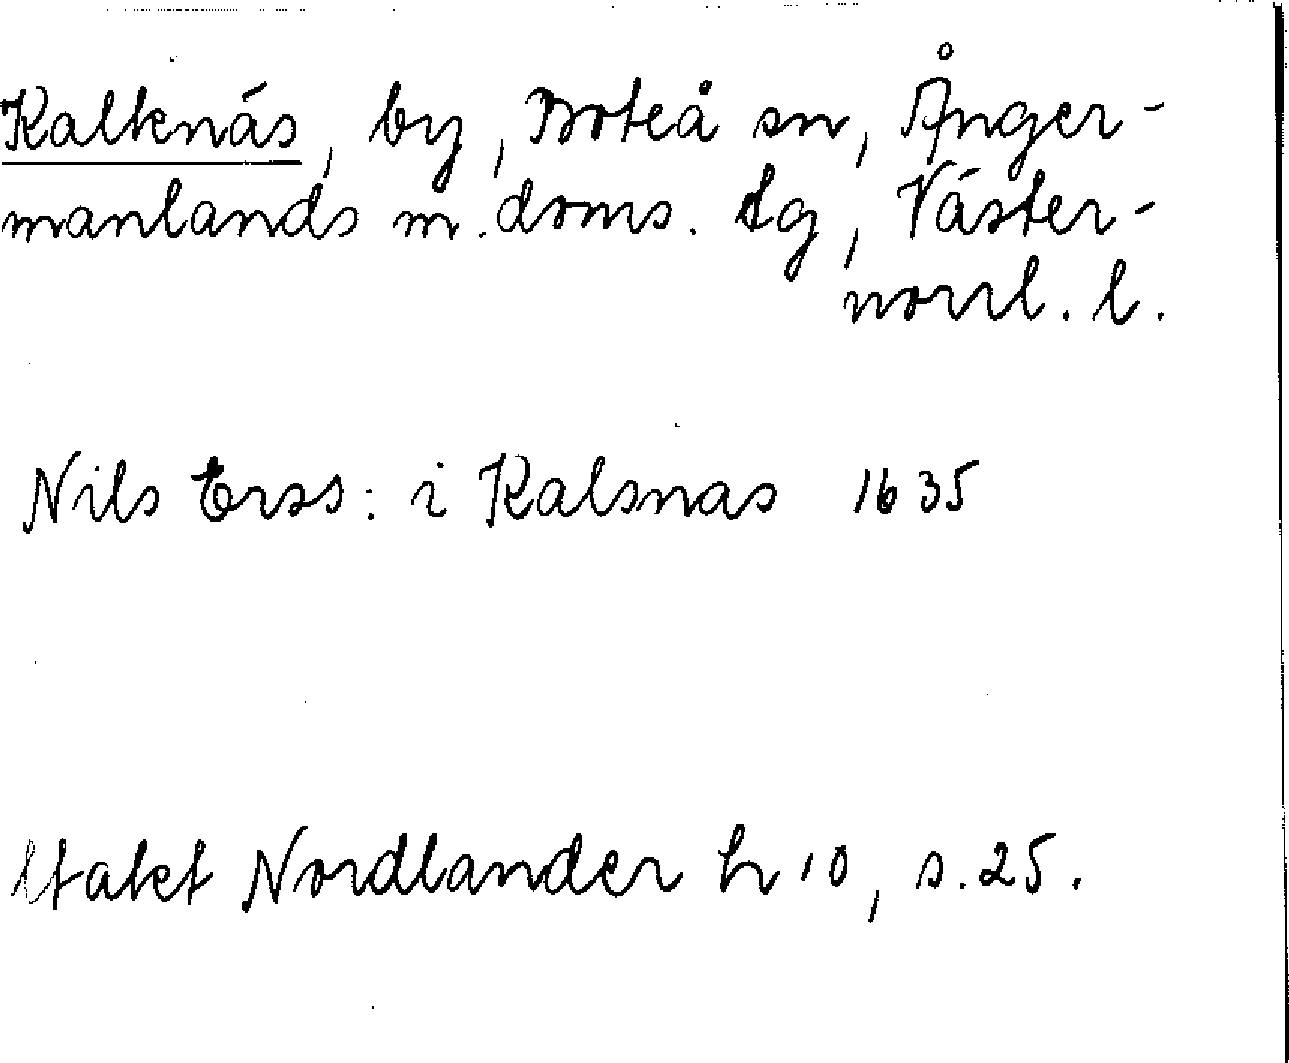 Kalknäs, by, Boteå sn, Ånger-
manlands m. doms. tg, Väster-
norrl. l.
Nils Erss: i Kalsnas 1635
Utakt Nordlander h 10, s. 25.